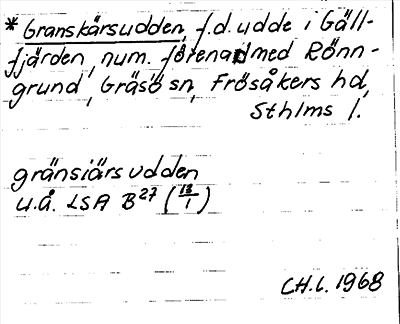 * Granskärsudden, f.d. udde i Gäll-
fjärden, num. förenad med Rönn-
grund, Gräsö sn, Frösåkers hd,
Sthlms l.
gränsiärsudden
u.å. LSA B27 (13/1)
CH.L. 1968